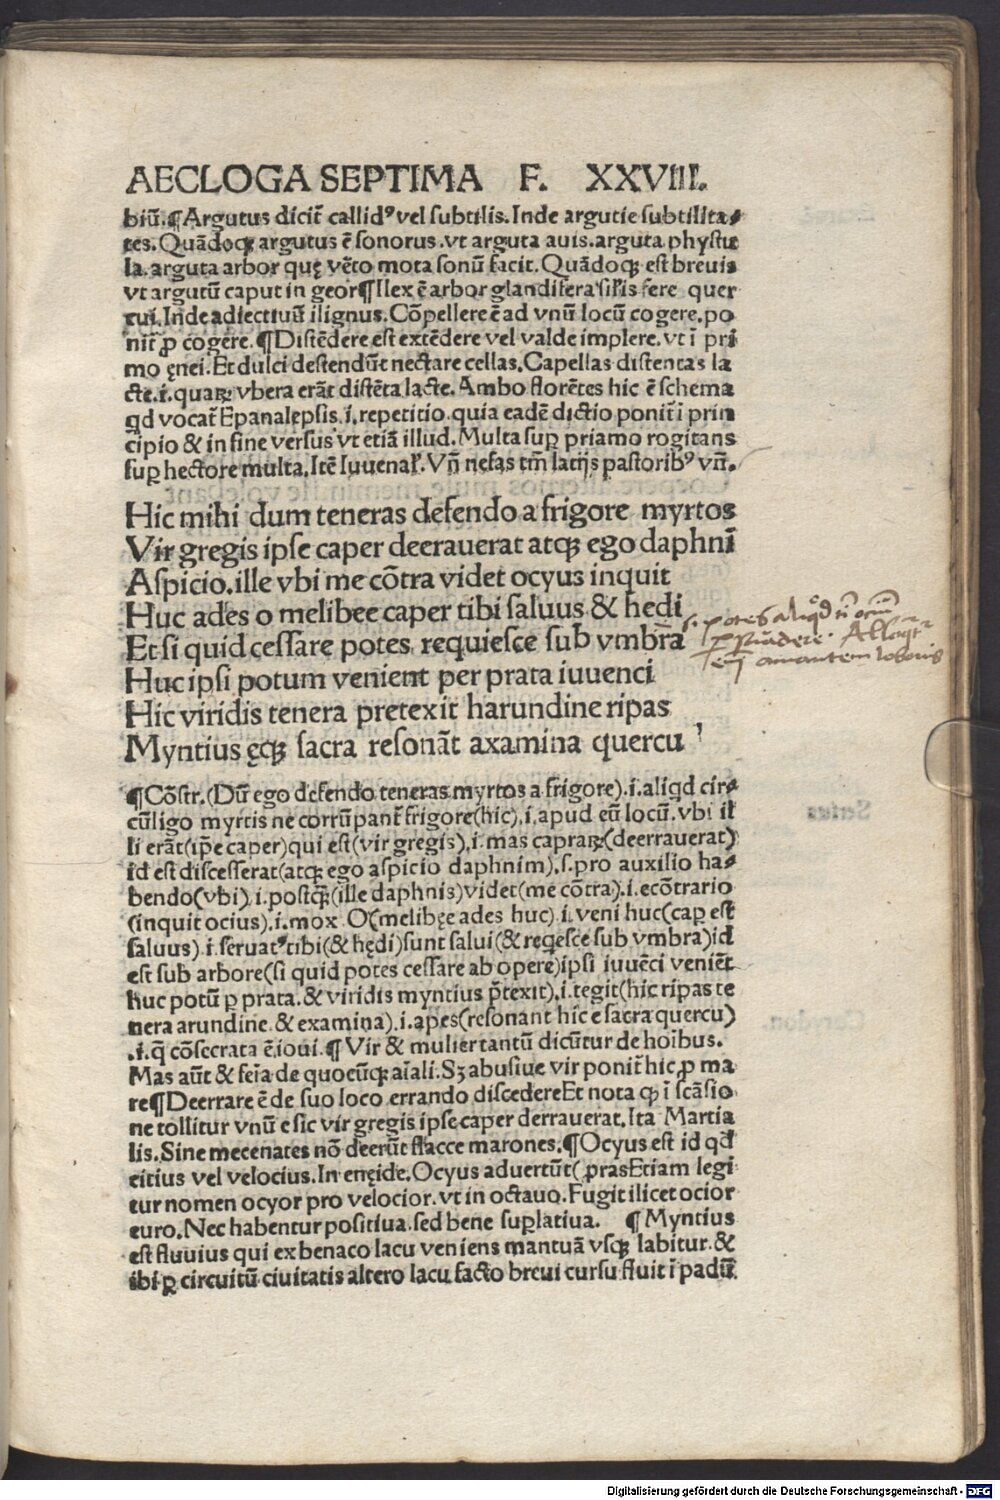 AECLOGA SEPTIMA F. XXVIII.
biū.¶Argutus dicit̄ callidꝰ vel subtilis.Inde argutie subtilita⸗
tes.Quādoqꝫ argutus ē sonorus.vt arguta auis.arguta phystu
la.arguta arbor quę vēto mota sonū facit.Quādoqꝫ est breuis
vt argutū caput in geor¶Ilex ē arbor glandifera sil̄is fere quer
cui.Inde adiectiuū ilignus.Cōpellere ē ad vnū locū cogere.po
nit̄ ꝓ cogere.¶Distēdere est extēdere vel valde implere.vt ī pri
mo ęnei.Et dulci destendūt nectare cellas.Capellas distentas la
cte.i.quaꝝ vbera erāt distēta lacte.Ambo florētes hic ē schema
qd vocat̄ Epanalepsis.i.repetitio.quia eadē dictio ponit̄ ī prin
cipio & in fine versus vt etiā illud.Multa suꝑ priamo rogitans
suꝑ hectore multa.Itē Iuuenal̄.Vn̄ nefas tm̄ latijs pastoribꝰ vn̄.
Hic mihi dum teneras defendo a frigore myrtos
Vir gregis ipse caper deerauerat atqꝫ ego daphnī
Aspicio.ille vbi me cōtra videt ocyus inquit
Huc ades o melibee caper tibi saluus & hedi
Et si quid cessare potes requiesce sub vmbra
s. potes aliqd
Huc ipsi potum venient per prata iuuenci
amantem laboris
Hic viridis tenera pretexit harundine ripas
Myntius ęqꝫ sacra resonāt axamina quercu
¶Cōstr.(Dū ego defendo teneras myrtos a frigore).i.aliqd cir⸗
cūligo myrtis ne corrūpant̄ frigore(hic).i.apud eū locū.vbi il
li erāt(ip̄e caper)qui est(vir gregis).i.mas capraꝝ(deerrauerat)
id est discesserat(atqꝫ ego aspicio daphnim).s.pro auxilio ha⸗
bendo(vbi).i.postqꝫ̄(ille daphnis)videt(me cōtra).i.ecōtrario
(inquit ocius).i.mox O(melibęe ades huc).i.veni huc(caꝑ est
saluus).i.seruatꝰ tibi(& hędi)sunt salui(& reqesce sub vmbra)id
est sub arbore(si quid potes cessare ab opere)ipsi iuuēci veniēt
huc potū ꝑ prata.& viridis myntius p̄texit).i.tegit(hic ripas te
nera arundine & examina).i.apes(resonant hic e sacra quercu)
.i.q̄ cōsecrata ē.ioui.¶Vir & mulier tantū dicūtur de hoībus.
Mas aūt & fem̄a de quocūqꝫ aīali.Sꝫ abusiue vir ponit̄ hic ꝓ ma
re¶Deerrare ē de suo loco errando discedereEt nota qꝫ ī scāsio
ne tollitur vnū e sic vir gregis ipse caper derrauerat.Ita Martia
lis.Sine mecenates nō deerūt flacce marones.¶Ocyus est id qd
citius vel velocius.In enęide.Ocyus aduertūt( prasEtiam legi
tur nomen ocyor pro velocior.vt in octauo.Fugit ilicet ocior
euro.Nec habentur positiua.sed bene suꝑlatiua. ¶Myntius
est fluuius qui ex benaco lacu veniens mantuā vsqꝫ labitur.&
ibi ꝑ circuitū ciuitatis altero lacu facto breui cursu fluit ī padū.
Digitalisierung gefördert durch die Deutsche Forschungsgemeinschaft - DFG